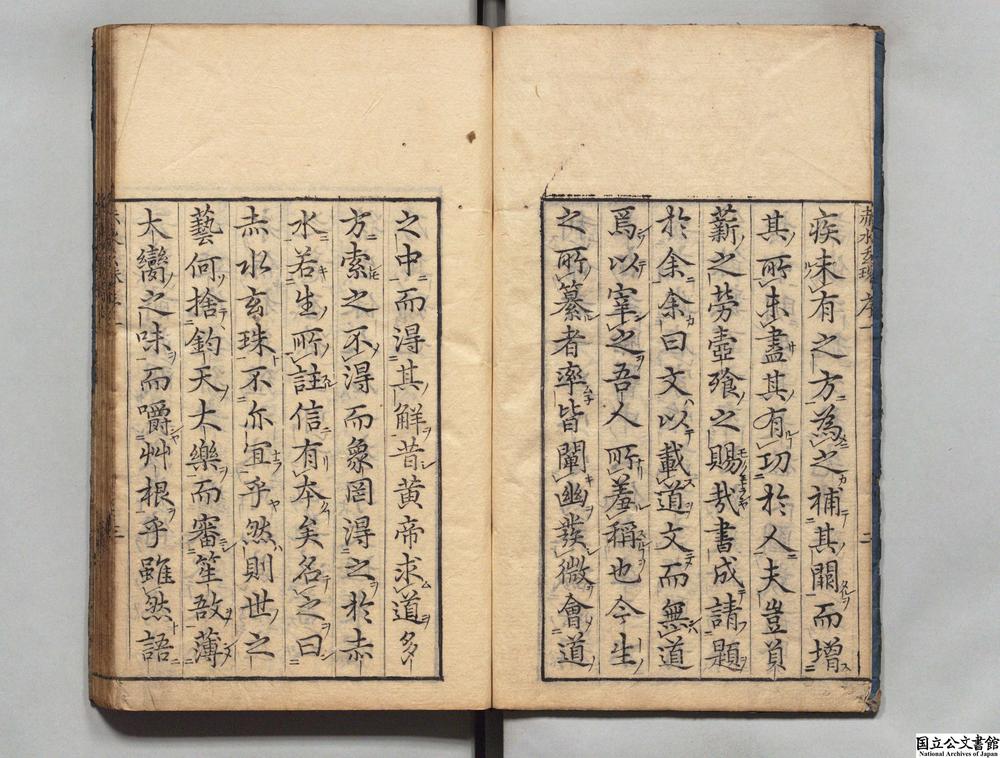 疾未有之方為之補其闕而增
其所未盡其有功於人夫豈負
薪之勞壺飱之賜哉書成請題
於余余曰文以載道文而無道
焉以宰之吾人所羞稱也今生
之所纂者率皆闡幽發微會道
之中而得其解昔黃帝求道多
方索之不得而象罔得之於赤
水若生所註信有本矣名之曰
赤水玄珠不亦宜乎然則世之
藝何捨鈞天太樂而審笙敔薄
太臠之味而嚼艸根乎雖然語
国立公文書館
National Archives of Japan